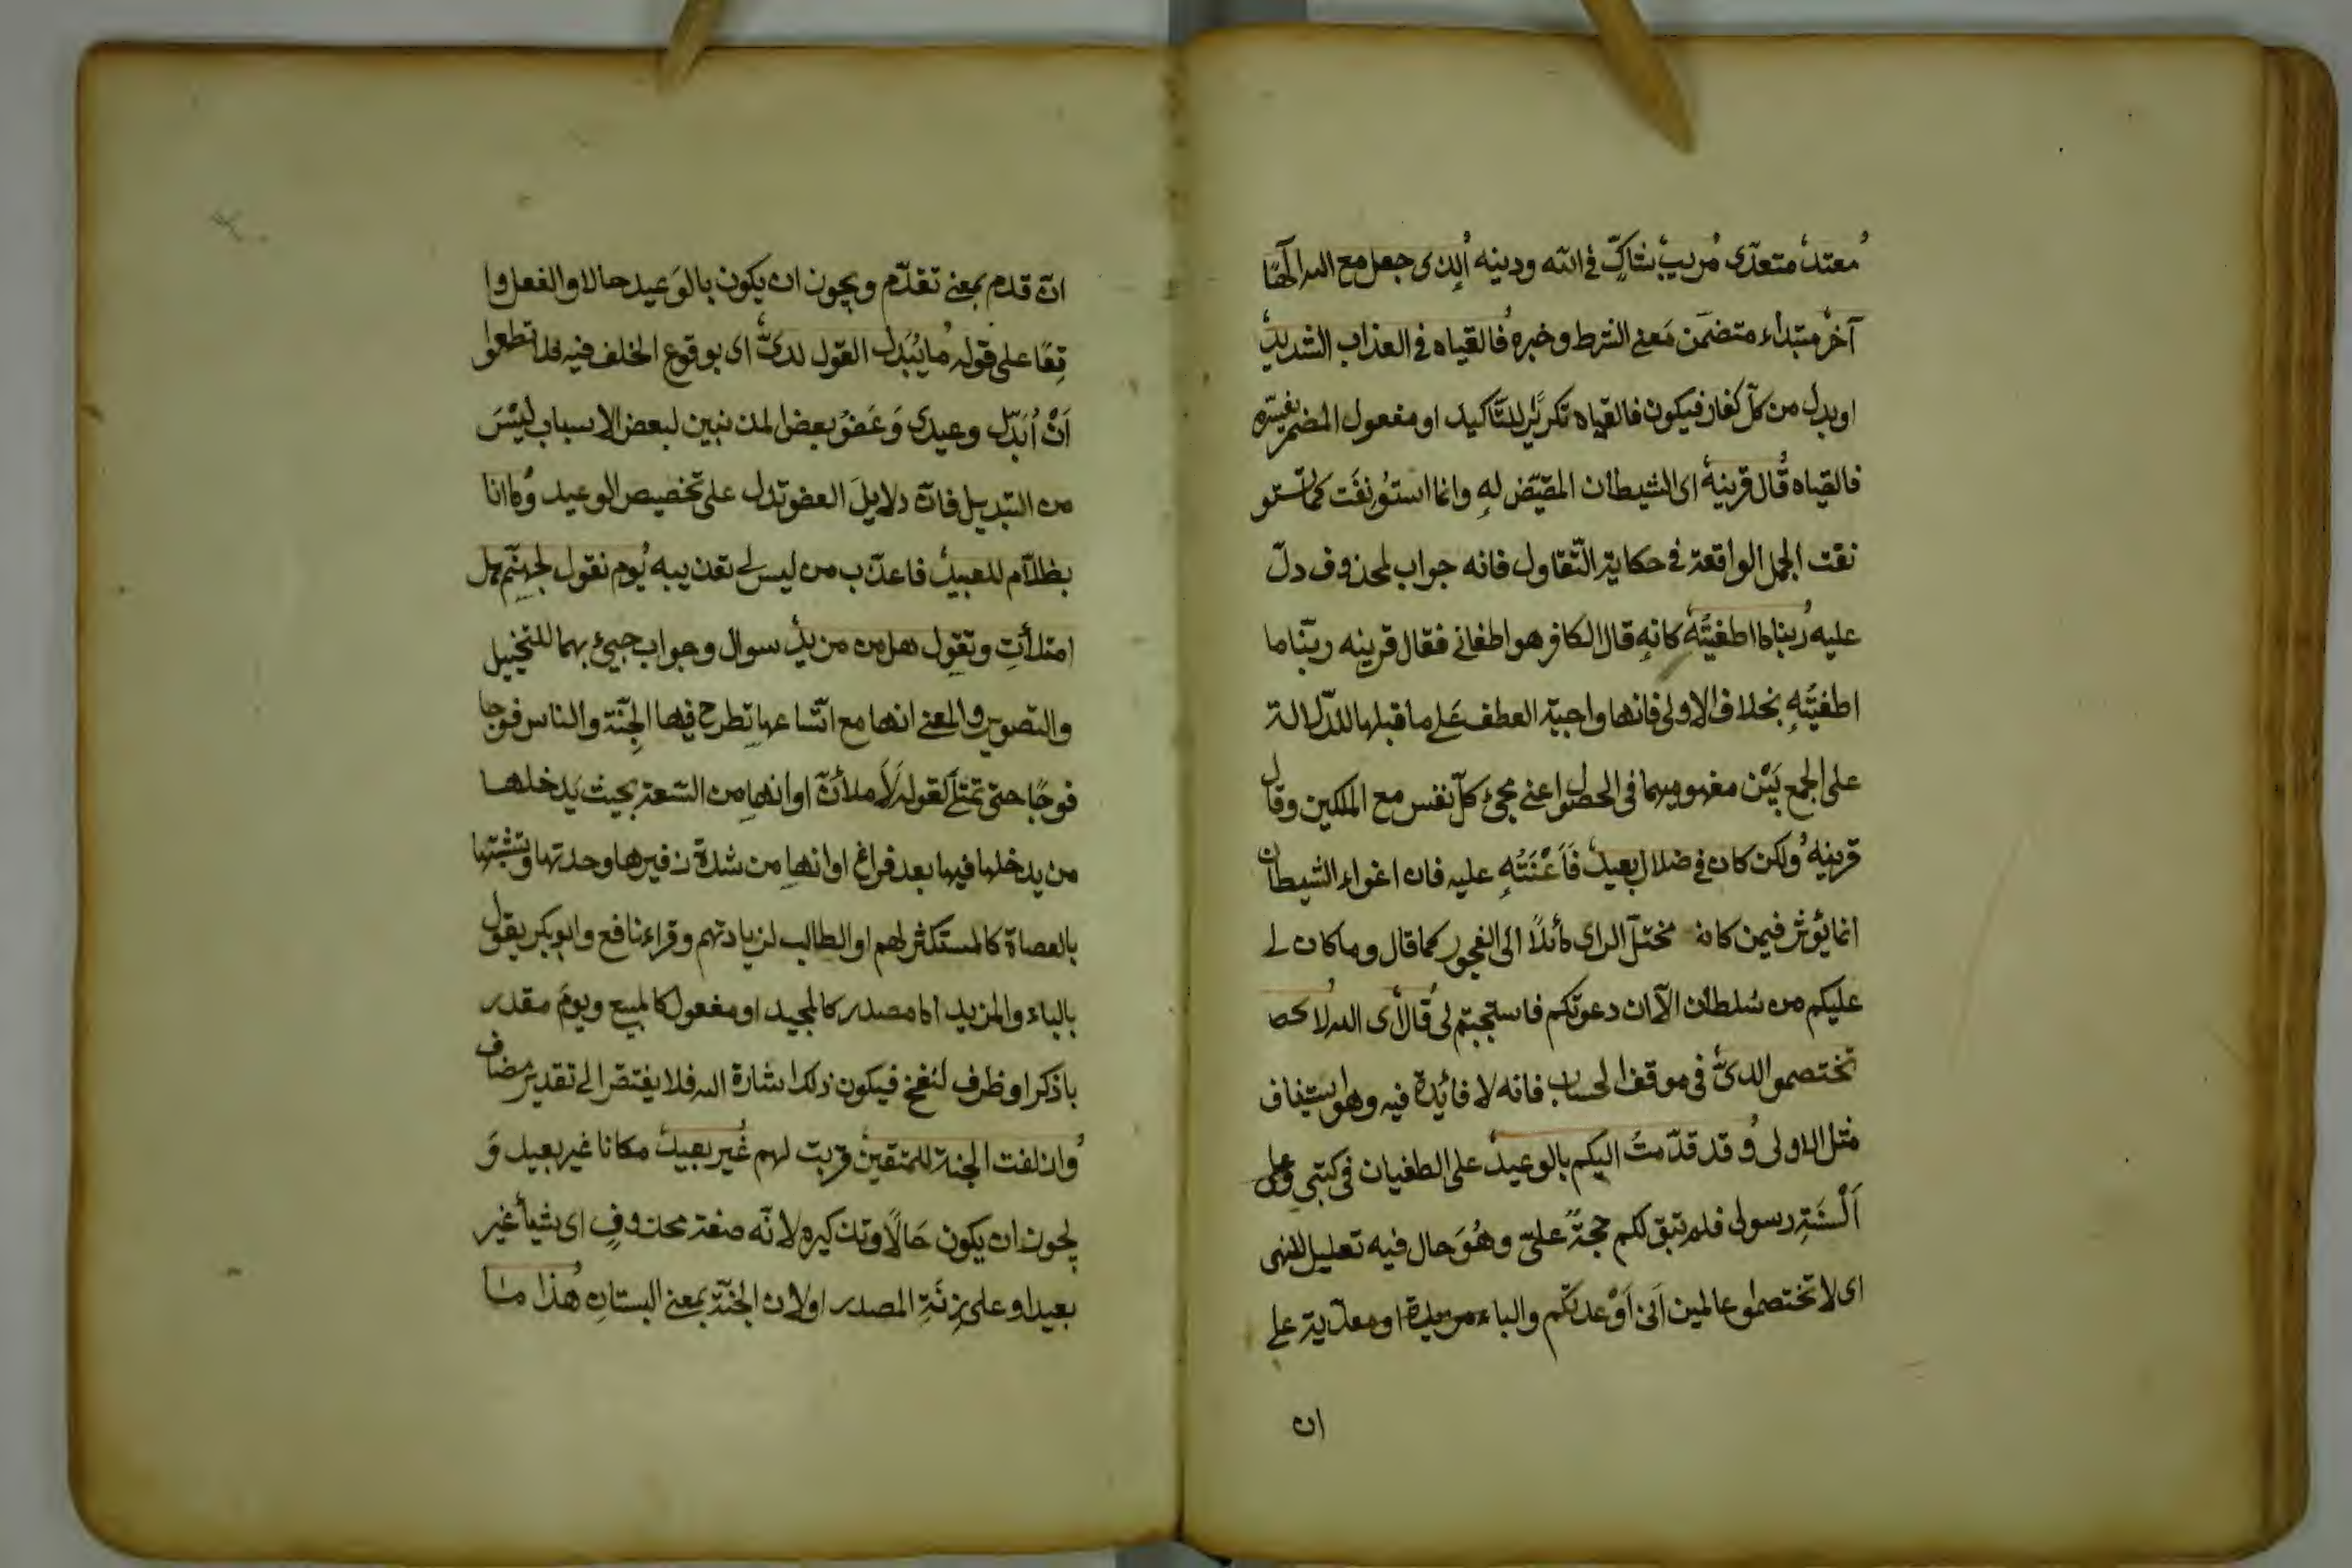 مُعتدٍ متعدّى مُريبٍ شاكّ فى الله ودينه الذى جعل مع الله الٓهًا
آخر مبتداء متضمن مَعنى الشرط وخبره فالقياه فى العذاب الشديد
او بدل من كلّ كفار فيكون فالقياه تكريرًا للتّاكيد او مفعول المضمر يفسّره
فالقياه قال قرينه اى الشيطان المقيّض له وانما استؤنفت كما تستو
نفت الجمل الواقعة فى حكاية التّقاول فانه جواب لمحذوف دلّ
عليه ربنا ما اطغيتُه كانه قال الكافر هو اطغانى فقال قرينه ربّنا ما
اطغيتُه بخلاف الاولى فانها واجبة العطف عَلى ما قبلها للدّلالة
على الجمع بَيْن مفهوميهما فى الحصول اعنى مجئ كلّ نفس مع الملكين وقال
قرينه ولكن كان فى ضلال بعيد فَاَعْنَتُهِ عليه فان اغواء الشيطان
انما يؤثر فيمن كان مختلّ الراى مائلًا الى الفجور كما قال وما كان لى
عليكم من سُلطان الّا ان دعوتكم فاستجبتم لى قال اى الله لا
تختصموا لدىّ فى موقف الحساب فانه لا فائدة فيه وهو استيناف
مثل الاولى وقد قدّمتُ اليكم بالوعيد على الطغيان فى كتبى وعلى
اَلْسنَةِ رسولى فلم تبق لكم حجةً علىّ وهُوَ حال فيه تعليل للنهى
اى لا تختصموا عالمين اَنى اَوْعدتكم والباء مزيدة او معدّية على
ان
انّ قدم بمعنى تقدّم ويجوز ان يكون بالوَعيد حالا والفعل وا
قِعًا على قوله ما يُبَدل القول لدىّ اى بوقوع الخلف فيه فلا تطمعوا
اَنْ اُبَدّل وعيدى وَعَفوُ بعض المذنبين لبعض الاسباب ليْسَ
من التبديل فانّ دلايلَ العفو تدل على تخصيص الوعيد وما انا
بظلّام للعبيد فاعذّب من ليس لى تعذيبه يوم نقول لجهنّم هل
امتلأتِ وتقول هل من مزيد سوال وجواب جيئ بهما للتخييل
والتصوير والمعنى انها مع اتّساعها تطرح فيها الجِنّة والناس فوجا
فوجًا حتى تمتلئ لقوله لَاَملأنّ او انها من السّعة بحيث يَدخلها
من يدخلها فيها بعد فراغ او انها من شدة زفيرها وحدتها وتشبّثها
بالعصاة كالمستكثر لهم او الطالب لزيادتهم وقراء نافع وابوبكر يقول
بالياء والمزيد اما مصدر كالمجيد او مفعول كالمبيع ويومَ مقدر
باذكر او ظرف لنُفخ فيكون ذلك اشارة اليه فلا يفتقر الى تقدير مضاف
وازلفت الجنة للمتقين قربت لهم غير بعيد مكانا غير بعيد وَ
يجوز ان يكون حَالًا وتذكيره لانّه صفة محذوفٍ اى شيأ غير
بعيد او على زِنَةِ المصدر او لان الجنّة بمعنى البستان هذا ما